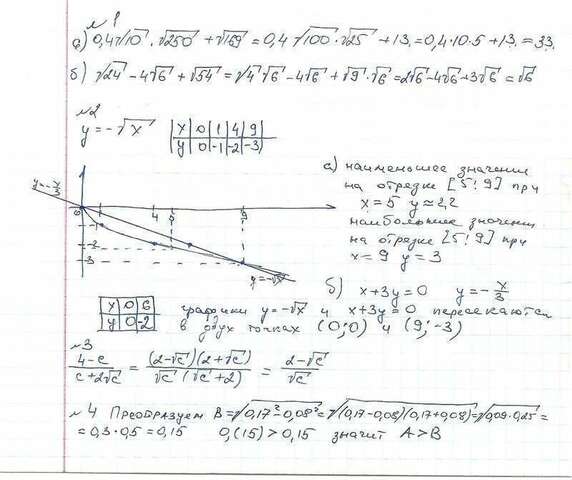 №1
а) 0,4√10 · √250 + √169 = 0,4 √100 · √25 + 13 = 0,4·10·5 + 13 = 33.
б) √24 - 4√6 + √54 = √4 √6 - 4√6 + √9 · √6 = 2√6 - 4√6 + 3√6 = √6
№2
y = -√x
x 0 1 4 9
y 0 -1 -2 -3
y = -x/3
0 4 5 9
-1
-2
-3
y = -√x
а) наименьшее значение
на отрезке [5; 9] при
x = 5 y ≈ 2,2
наибольшее значение
на отрезке [5; 9] при
x = 9 y = 3
б) x + 3y = 0 y = -x/3
x 0 6
y 0 -2
графики y = -√x и x + 3y = 0 пересекаются
в двух точках (0; 0) и (9; -3)
№3
(4-c)/(c+2√c) = ((2-√c)(2+√c))/(√c (√c+2)) = (2-√c)/√c
№4 Преобразуем B = √(0,17² - 0,08²) = √((0,17-0,08)(0,17+0,08)) = √(0,09·0,25) =
= 0,3 · 0,5 = 0,15 0,(15) > 0,15 значит A > B